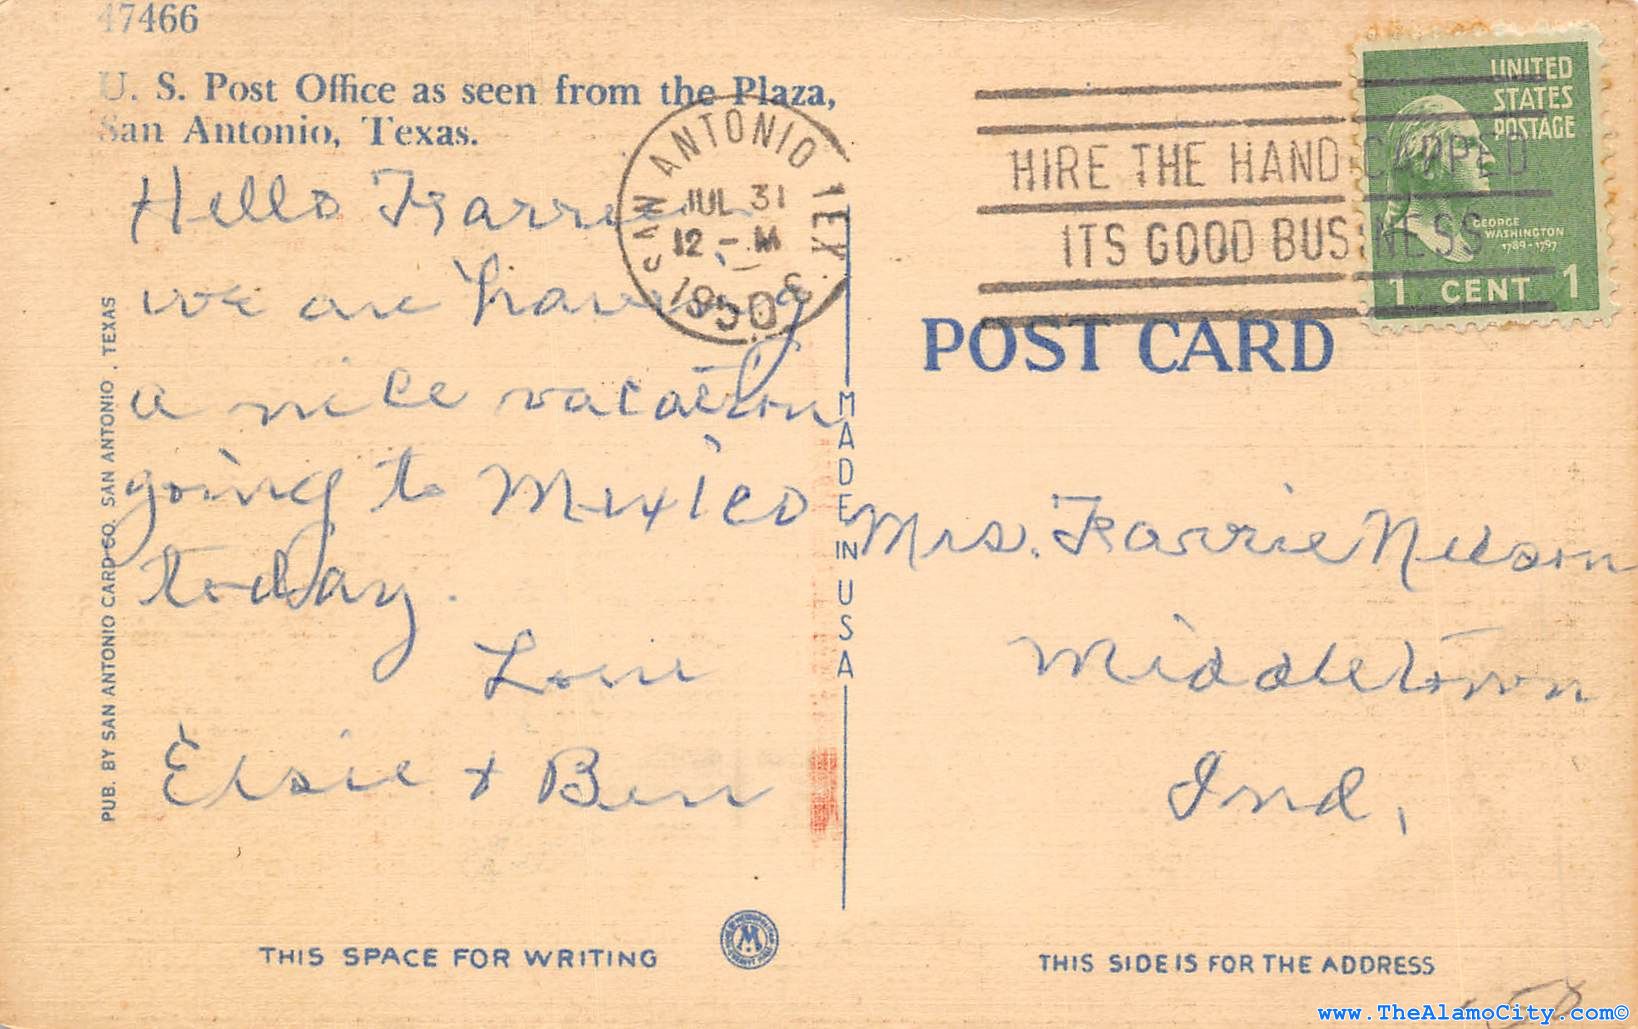 47466
U. S. Post Office as seen from the Plaza,
San Antonio, Texas.
Hello Farrie
we are having
a nice vacation
going to Mexico
today.
Love
Elsie + Ben
PUB. BY SAN ANTONIO CARD CO. SAN ANTONIO, TEXAS
THIS SPACE FOR WRITING
M
SAN ANTONIO TEX
JUL 31
12 - M
1950
MADE IN USA
HIRE THE HANDICAPPED
ITS GOOD BUSINESS
UNITED
STATES
POSTAGE
GEORGE
WASHINGTON
1789-1797
1 CENT 1
POST CARD
Mrs. Farrie Nelson
Middletown
Ind.
THIS SIDE IS FOR THE ADDRESS
www.TheAlamoCity.com©